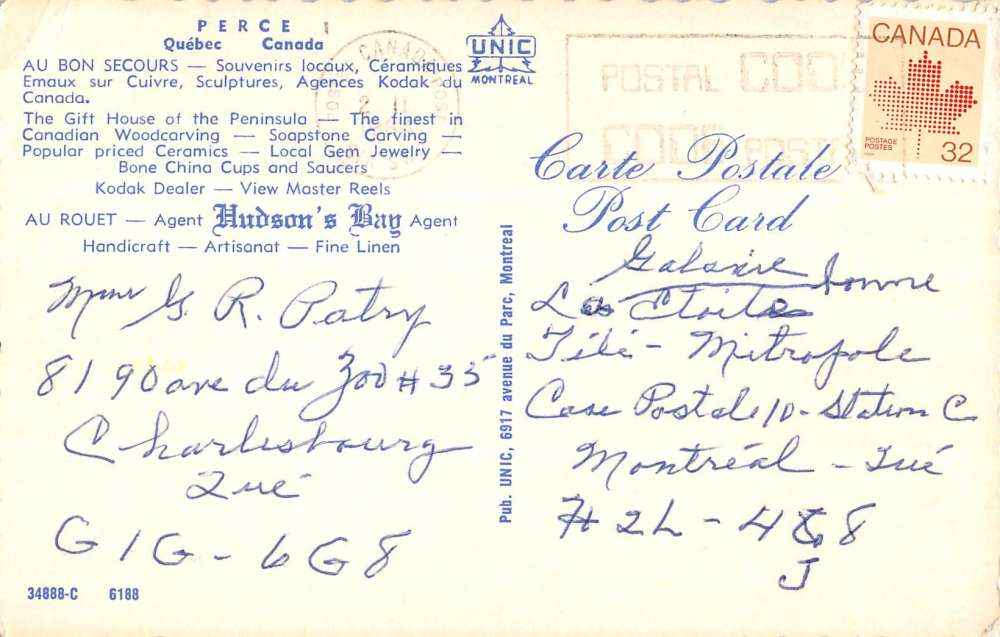 PERCE
Québec Canada
AU BON SECOURS — Souvenirs locaux, Céramiques
Emaux sur Cuivre, Sculptures, Agences Kodak du
Canada.
The Gift House of the Peninsula — The finest in
Canadian Woodcarving — Soapstone Carving —
Popular priced Ceramics — Local Gem Jewelry —
Bone China Cups and Saucers
Kodak Dealer — View Master Reels
AU ROUET — Agent Hudson's Bay Agent
Handicraft — Artisanat — Fine Linen
UNIC
MONTREAL
CANADA
POSTAL
CODE
CANADA
POSTAGE
POSTES
32
Carte Postale
Post Card
Mme G. R. Patry
8190 ave du Zoo # 35
Charlesbourg
Qué
G1G-6G8
34888-C 6188
Pub. UNIC, 6917 avenue du Parc, Montreal
Galaxie
La Etoile
Télé-Métropole
Case Postale 10-Station C
Montréal - Qué
H2L-4 8
J